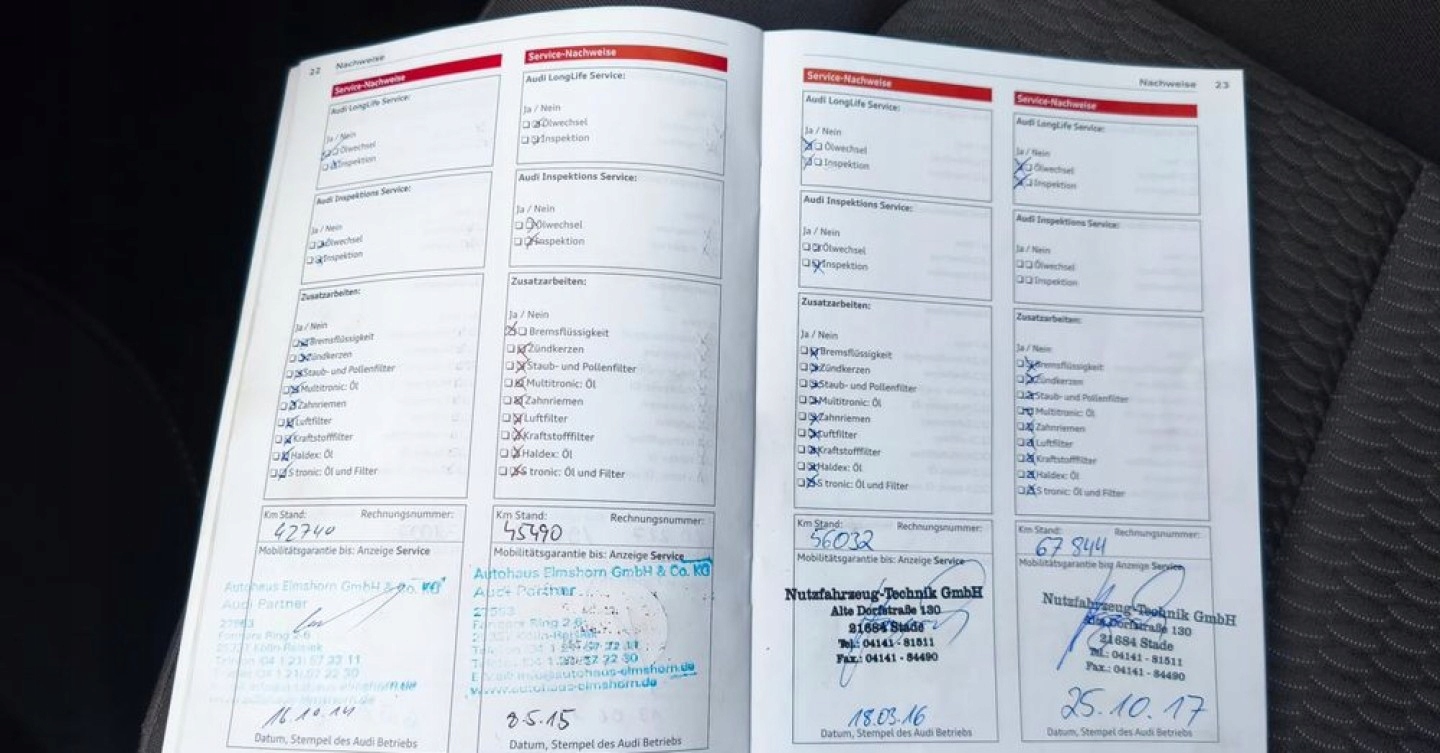 22 Nachweise
Service-Nachweise
Audi LongLife Service:
Ja / Nein
Ölwechsel
Inspektion
Audi Inspektions Service:
Ja / Nein
Ölwechsel
Inspektion
Zusatzarbeiten:
Ja / Nein
Bremsflüssigkeit
Zündkerzen
Staub- und Pollenfilter
Multitronic: Öl
Zahnriemen
Luftfilter
Kraftstofffilter
Haldex: Öl
S tronic: Öl und Filter
Km Stand: Rechnungsnummer:
42740
Mobilitätsgarantie bis: Anzeige Service
Autohaus Elmshorn GmbH & Co. KG
Audi Partner
16.10.14
Datum, Stempel des Audi Betriebs
Service-Nachweise
Audi LongLife Service:
Ja / Nein
Ölwechsel
Inspektion
Audi Inspektions Service:
Ja / Nein
Ölwechsel
Inspektion
Zusatzarbeiten:
Ja / Nein
Bremsflüssigkeit
Zündkerzen
Staub- und Pollenfilter
Multitronic: Öl
Zahnriemen
Luftfilter
Kraftstofffilter
Haldex: Öl
S tronic: Öl und Filter
Km Stand: Rechnungsnummer:
45490
Mobilitätsgarantie bis: Anzeige Service
Autohaus Elmshorn GmbH & Co. KG
Audi Partner
www.autohaus-elmshorn.de
8.5.15
Datum, Stempel des Audi Betriebs
Nachweise 23
Service-Nachweise
Audi LongLife Service:
Ja / Nein
Ölwechsel
Inspektion
Audi Inspektions Service:
Ja / Nein
Ölwechsel
Inspektion
Zusatzarbeiten:
Ja / Nein
Bremsflüssigkeit
Zündkerzen
Staub- und Pollenfilter
Multitronic: Öl
Zahnriemen
Luftfilter
Kraftstofffilter
Haldex: Öl
S tronic: Öl und Filter
Km Stand: Rechnungsnummer:
56032
Mobilitätsgarantie bis: Anzeige Service
Nutzfahrzeug-Technik GmbH
Alte Dorfstraße 130
21684 Stade
Tel.: 04141 - 81511
Fax.: 04141 - 84490
18.03.16
Datum, Stempel des Audi Betriebs
Service-Nachweise
Audi LongLife Service:
Ja / Nein
Ölwechsel
Inspektion
Audi Inspektions Service:
Ja / Nein
Ölwechsel
Inspektion
Zusatzarbeiten:
Ja / Nein
Bremsflüssigkeit
Zündkerzen
Staub- und Pollenfilter
Multitronic: Öl
Zahnriemen
Luftfilter
Kraftstofffilter
Haldex: Öl
S tronic: Öl und Filter
Km Stand: Rechnungsnummer:
67844
Mobilitätsgarantie bis: Anzeige Service
Nutzfahrzeug-Technik GmbH
Dorfstraße 130
21684 Stade
Tel.: 04141 - 81511
Fax.: 04141 - 84490
25.10.17
Datum, Stempel des Audi Betriebs